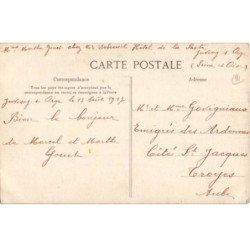 Mme Marthe Gouet chez Mr Hôtel de la Poste
Juvisy s/ Orge
(Seine et Oise)
CARTE POSTALE
Correspondance
Adresse
Tous les pays étrangers n'acceptent pas la
correspondance au recto, se renseigner à la Poste
Juvisy s/ Orge le 13 Août 1917
Bien le bonjour
de Marcel et Marthe
Gouet
Mr et Mme
Emigrés des Ardennes
Cité St Jacques
Troyes
Aube